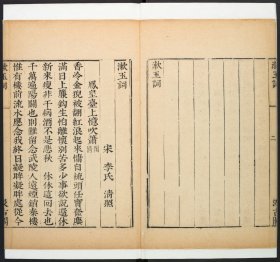 漱玉詞
二
漱玉詞
漱玉詞
宋 李氏 清照
鳳皇臺上憶吹簫
香冷金猊被翻紅浪起來慵自梳頭任寶奩塵
滿日上簾鉤生怕離懷別苦多少事欲說還休
新來瘦非干病酒不是悲秋 休休這回去也
千萬遍陽關也則難留念武陵人遠煙鎖秦樓
惟有樓前流水應念我終日凝眸凝眸處從今
漱玉詞
汲古閣